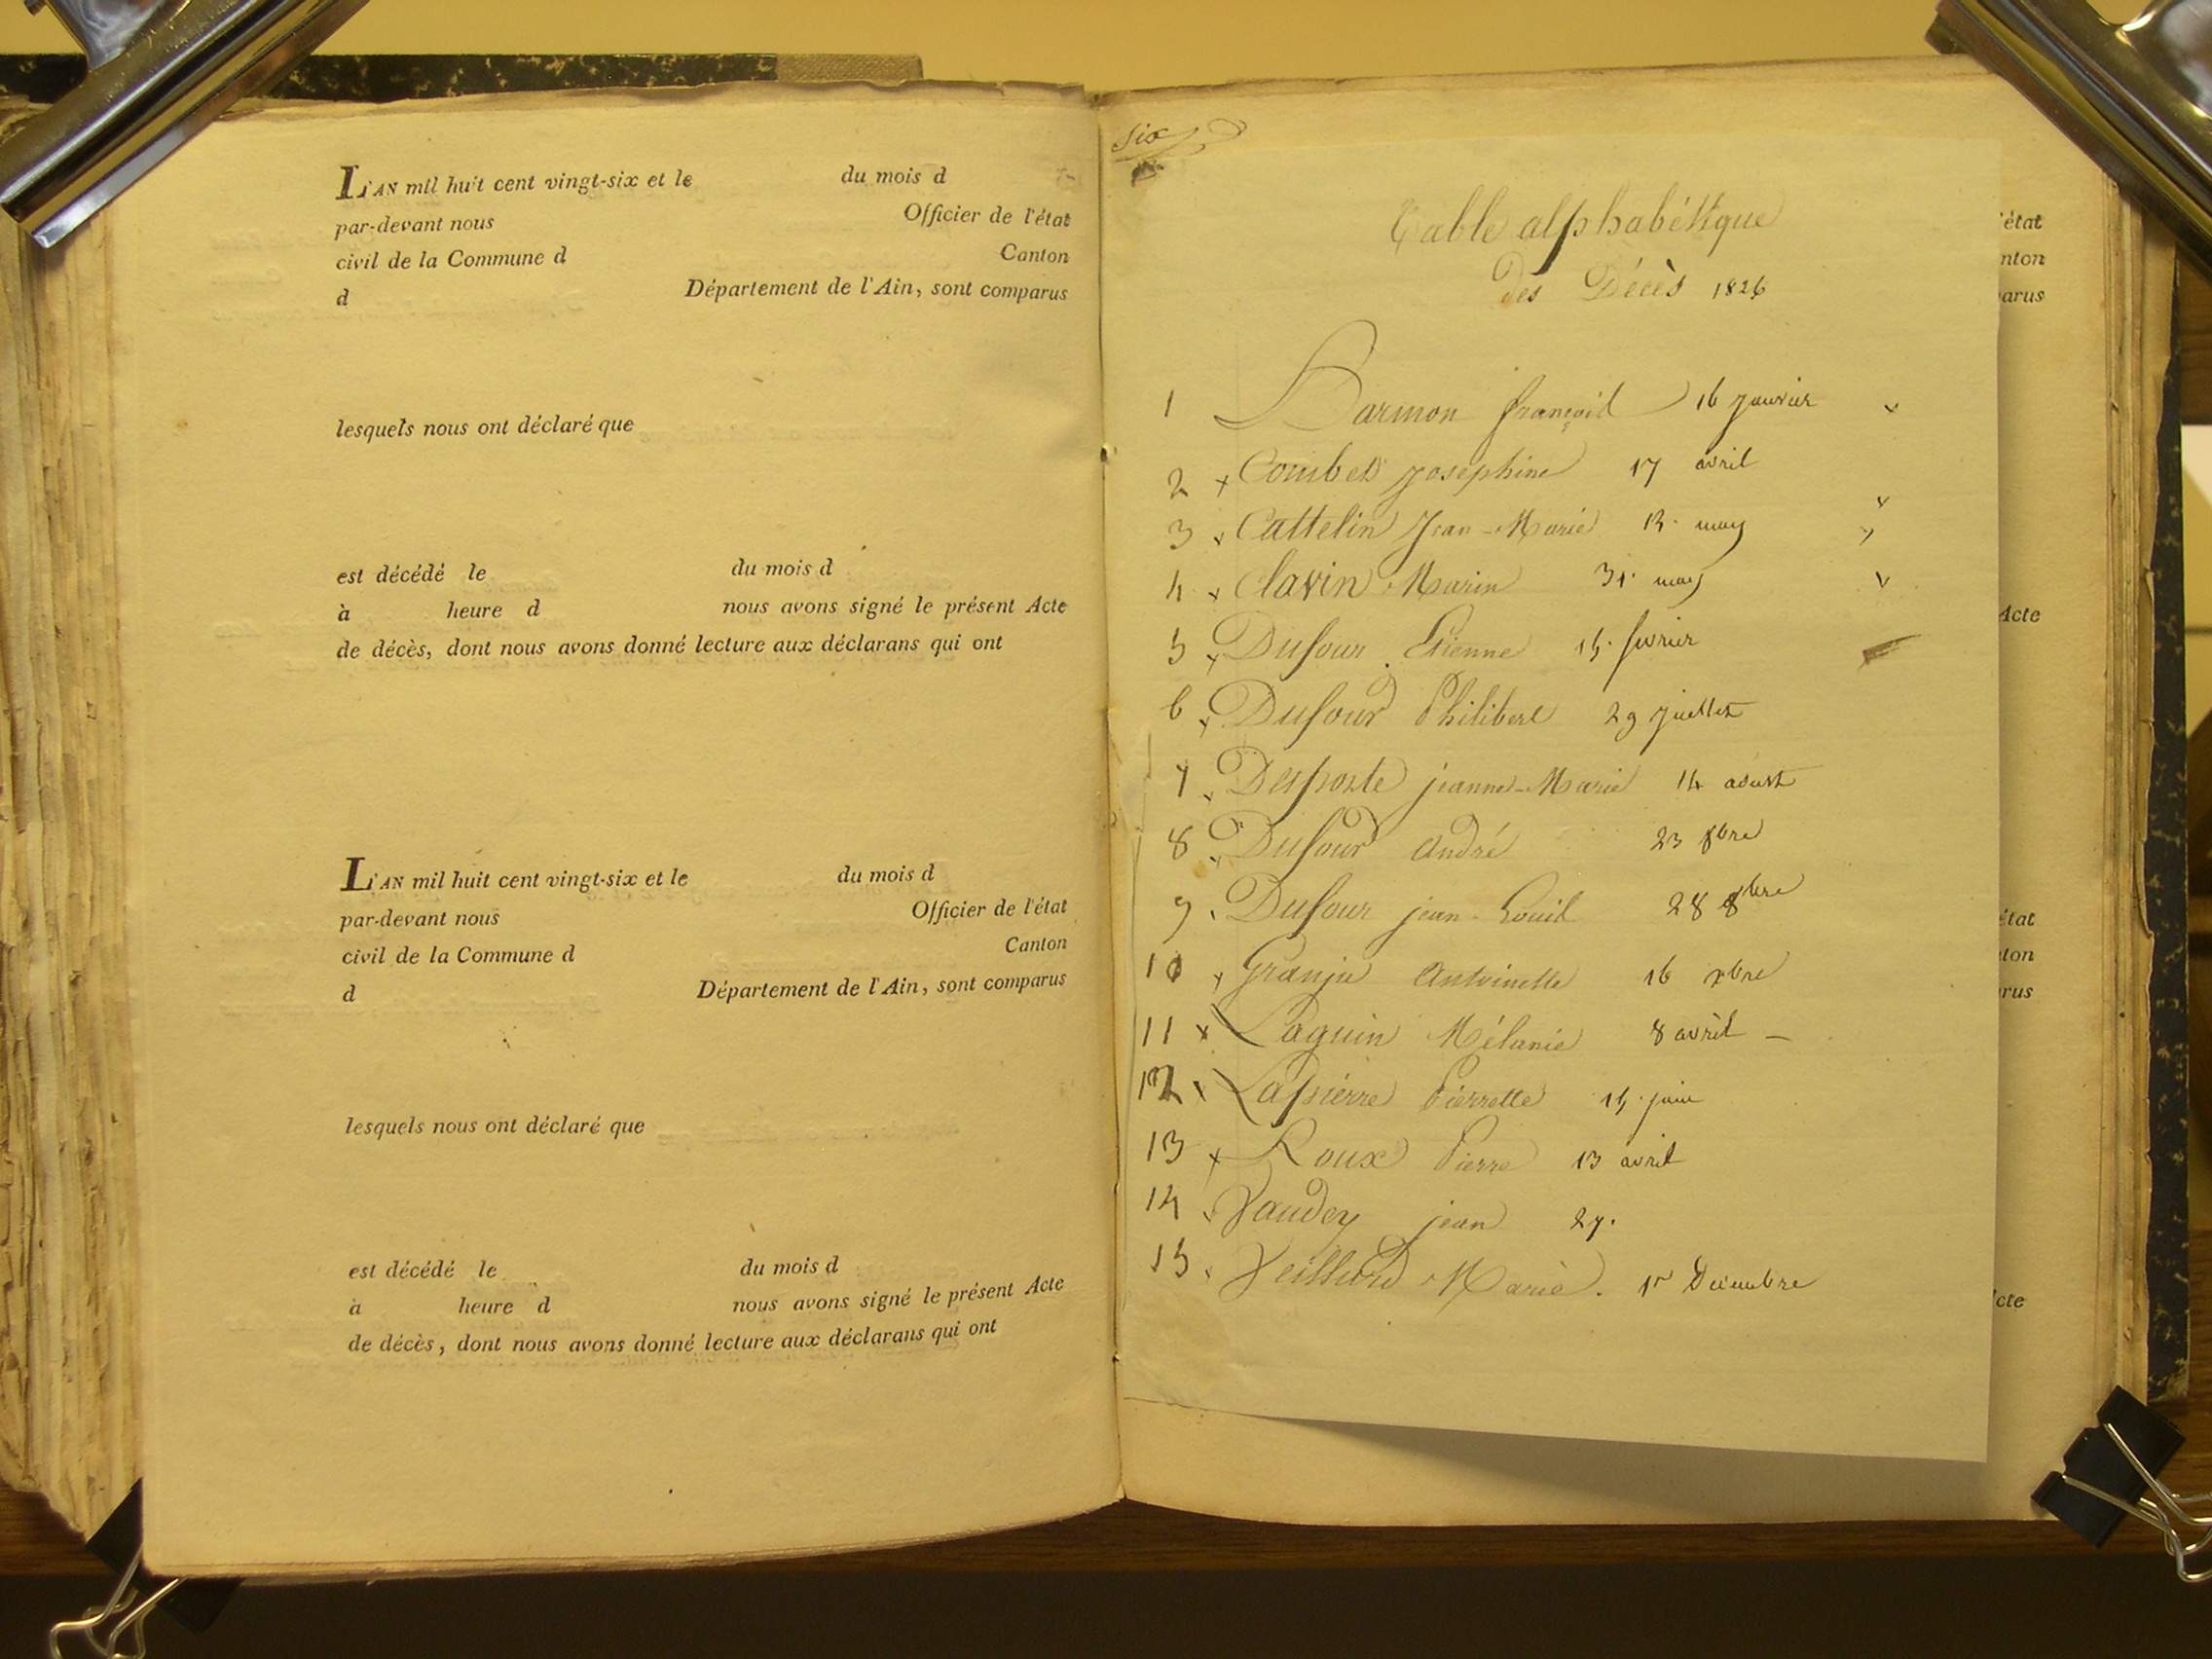 L'AN mil huit cent vingt-six et le du mois d
par-devant nous Officier de l'état
civil de la Commune d Canton
d Département de l'Ain, sont comparus
lesquels nous ont déclaré que
est décédé le du mois d
à heure d nous avons signé le présent Acte
de décès, dont nous avons donné lecture aux déclarans qui ont
L'AN mil huit cent vingt-six et le du mois d
par-devant nous Officier de l'état
civil de la Commune d Canton
d Département de l'Ain, sont comparus
lesquels nous ont déclaré que
est décédé le du mois d
à heure d nous avons signé le présent Acte
de décès, dont nous avons donné lecture aux déclarans qui ont
six
Table alphabétique
des Décès 1826
1 françois 16 janvier
2 x Combet Josephine 17 avril
3 x Cattelin Jean-Marie may
4 x Clavin Marin 31. may
5 x Dufour Etienne 15. fevrier
6 x Dufour Philibert 29 juillet
7 Desporte jeanne-Marie 14 aoust
8 Dufour andré 23 8bre
9 Dufour jean-Louis 28 8bre
10 x Granje antoinette 16 xbre
11 x Laguin Mélanie 8 avril -
12 x Lapierre Pierrette 15. juin
13 x Roux Pierre 13 avril
14 Vaudey jean 27.
15 Veillard Marie. 1r Decembre
'état
nton
arus
Acte
état
ton
rus
cte